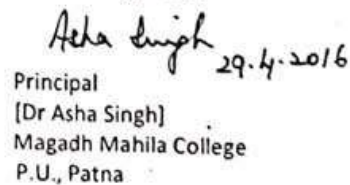 Asha Singh 29.4.2016
Principal
[Dr Asha Singh]
Magadh Mahila College
P.U., Patna